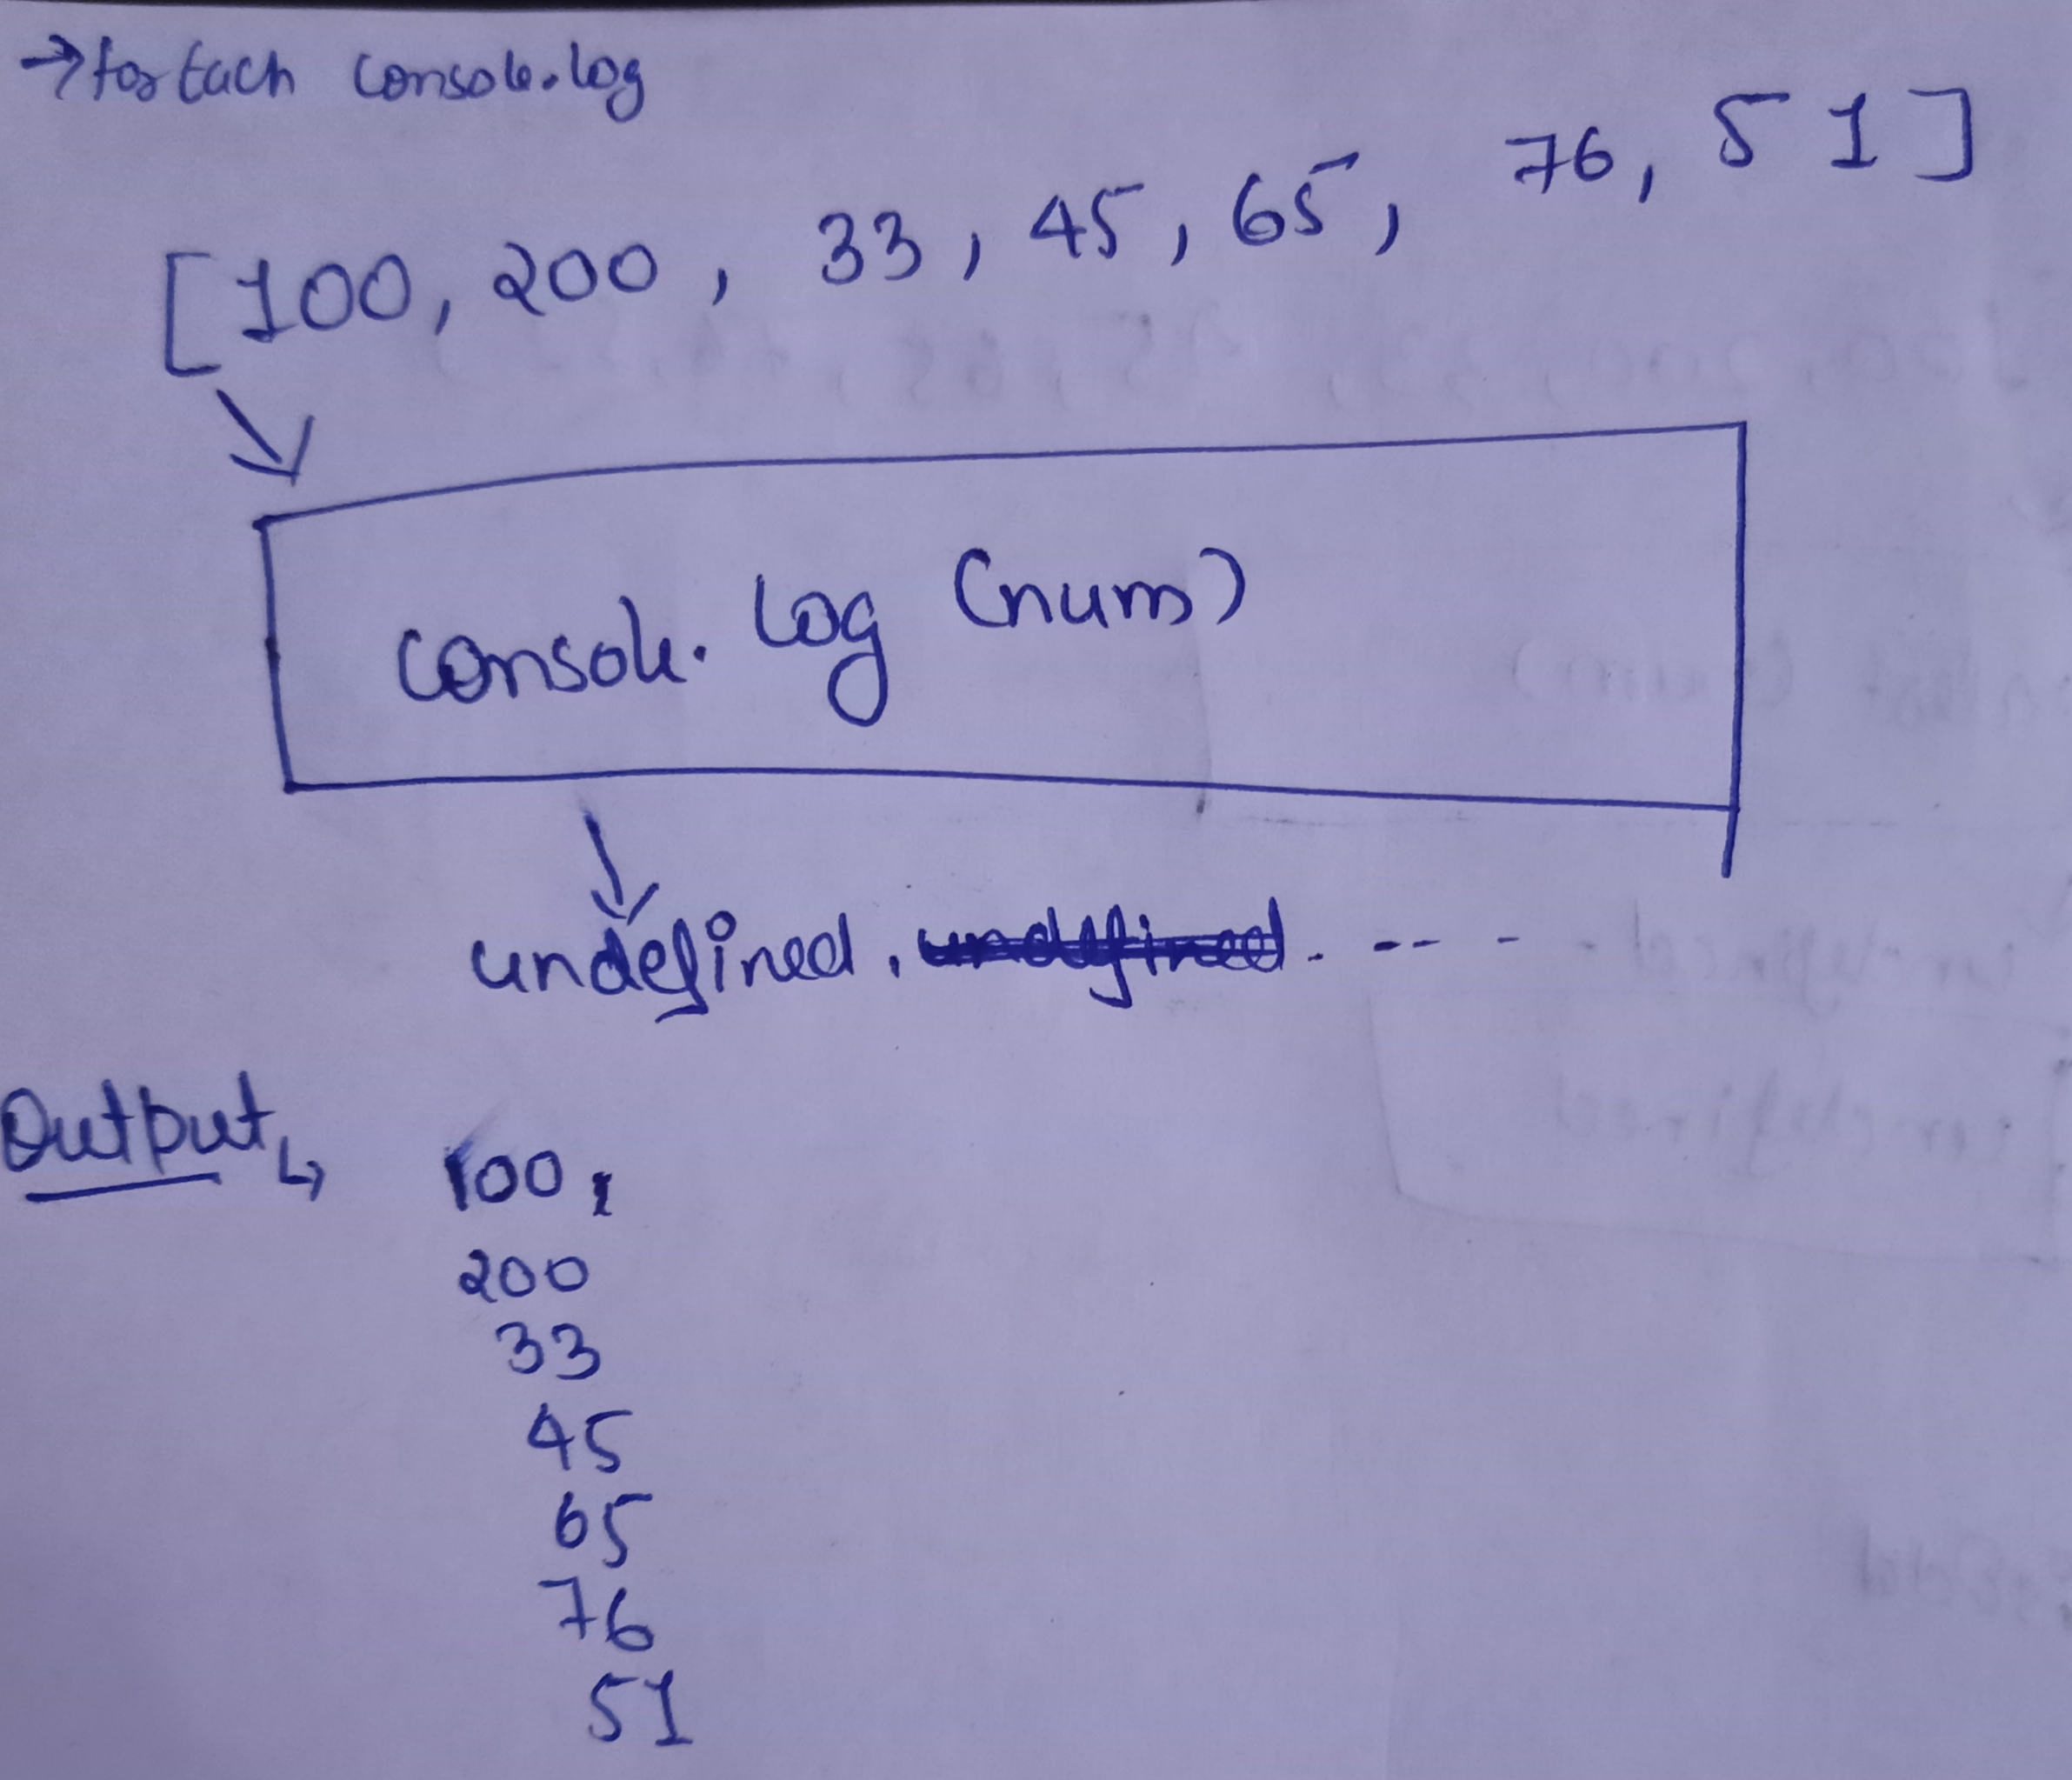 → forEach console.log
[100, 200, 33, 45, 65, 76, 51]
console.log (num)
undefined, undefined. -- - -
Output ↳ 100,
200
33
45
65
76
51